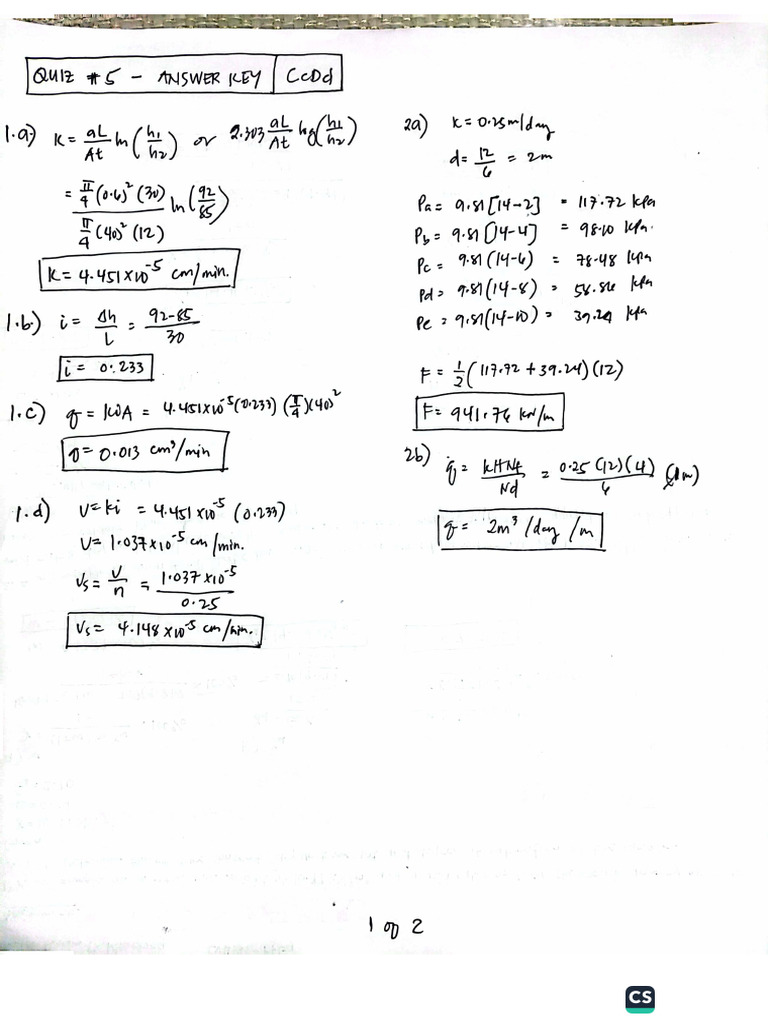 QUIZ #5 - ANSWER KEY | CCDd
1.a) K = aL/At ln(h1/h2) or 2.303 aL/At log(h1/h2)
= π/4 (0.6)² (30) / π/4 (40)² (12) ln(92/85)
K = 4.451x10⁻⁵ cm/min.
1.b) i = Δh/L = 92-85/30
i = 0.233
1.c) q = kiA = 4.451x10⁻⁵ (0.233) (π/4)(40)²
q = 0.013 cm³/min
1.d) V = ki = 4.451x10⁻⁵ (0.233)
V = 1.037x10⁻⁵ cm/min.
Vs = V/n = 1.037x10⁻⁵/0.25
Vs = 4.148x10⁻⁵ cm/min.
2a) K = 0.25m/day
d = 12/6 = 2m
Pa = 9.81[14-2] = 117.72 kpa
Pb = 9.81[14-4] = 98.10 kpa.
Pc = 9.81(14-6) = 78.48 kpa
Pd = 9.81(14-8) = 58.86 kpa
Pe = 9.81(14-10) = 39.24 kpa
F = 1/2 (117.72 + 39.24)(12)
F = 941.76 kN/m
2b) q = KHNf/Nd = 0.25(12)(4)/6 (1m)
q = 2m³/day/m
1 of 2
CS